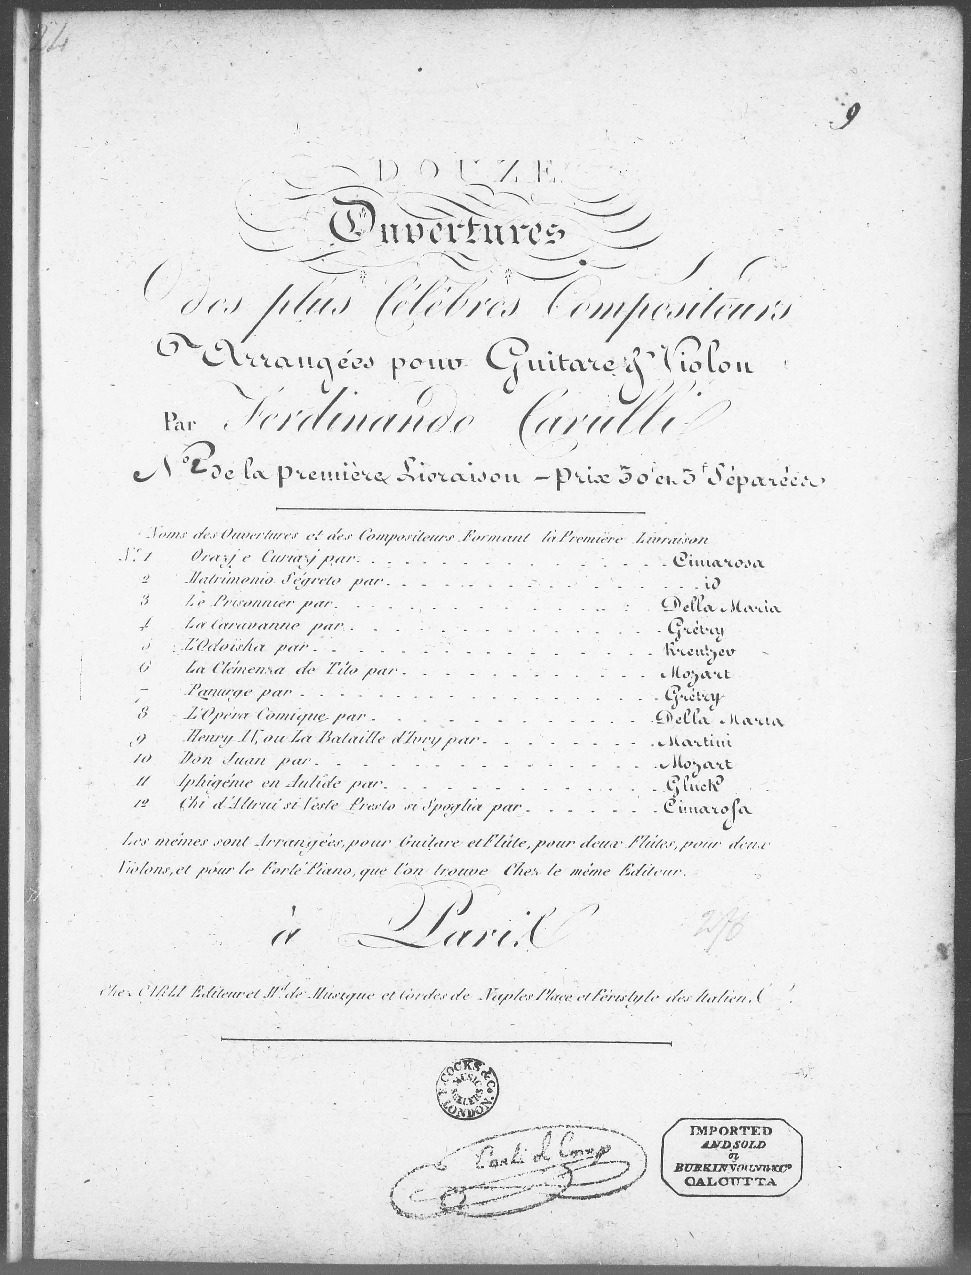 24
9
DOUZE
Ouvertures
des plus Célèbres Compositeurs
Arrangées pour Guitare & Violon
Par Ferdinando Carulli
No. 2 de la première Livraison - Prix 30f en 3f Séparées
Noms des Ouvertures et des Compositeurs Formant la Première Livraison
No. 1 Orazj e Curiazj par Cimarosa
2 Matrimonio Ségreto par id
3 Le Prisonnier par Della Maria
4 La Caravanne par Grétry
5 L'Odoiska par Kreutzer
6 La Clémenza de Tito par Mozart
7 Panurge par Grétry
8 L'Opéra Comique par Della Maria
9 Henry IV, ou La Bataille d'Ivry par Martini
10 Don Juan par Mozart
11 Iphigénie en Aulide par Gluck
12 Chi d'Altrui si Veste Presto si Spoglia par Cimarosa
Les mêmes sont Arrangées, pour Guitare et Flûte, pour deux Flûtes, pour deux
Violons, et pour le Forté Piano, que l'on trouve Chez le même Editeur.
à Paris
Chez CARLI Editeur et Md. de Musique et Cordes de Naples Place et Péristyle des Italiens
R. COCKS & Co.
MUSIC SELLERS
LONDON.
Carli et Comp
IMPORTED
AND SOLD
CALCUTTA